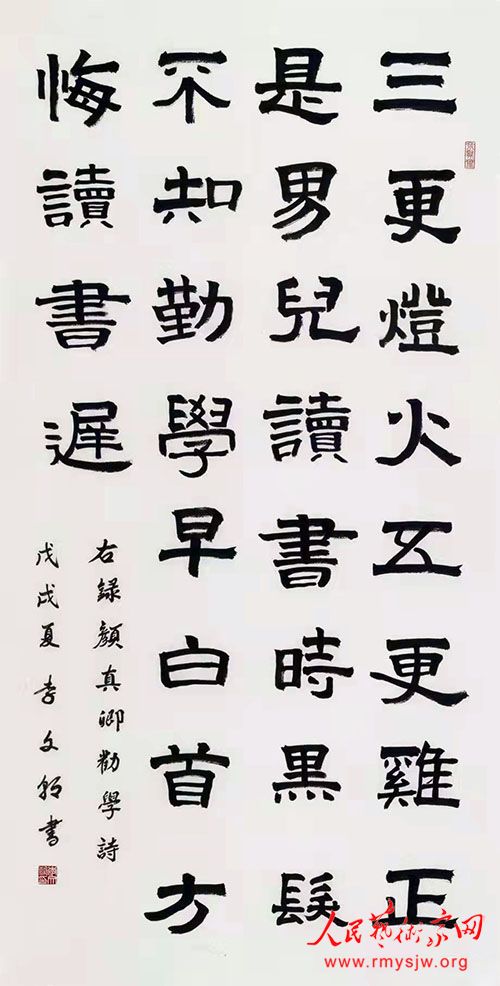 三更燈火五更雞正
是男兒讀書時黑髮
不知勤學早白首方
悔讀書遲
右録顏真卿勸學詩
戊戌夏 李文書
人民藝術家网
www.rmysjw.org